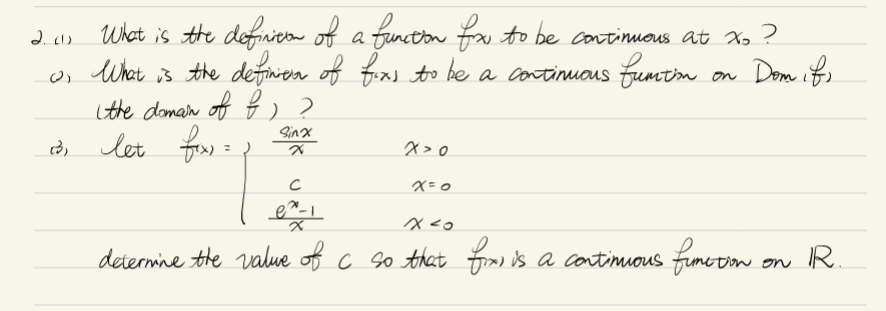 2. (1) What is the definition of a function f(x) to be continuous at x₀ ?
(2) What is the definition of f(x) to be a continuous function on Dom(f)
(the domain of f) ?
(3) let f(x) = { sinx/x x > 0
c x = 0
(e^x - 1)/x x < 0
determine the value of c so that f(x) is a continuous function on ℝ.